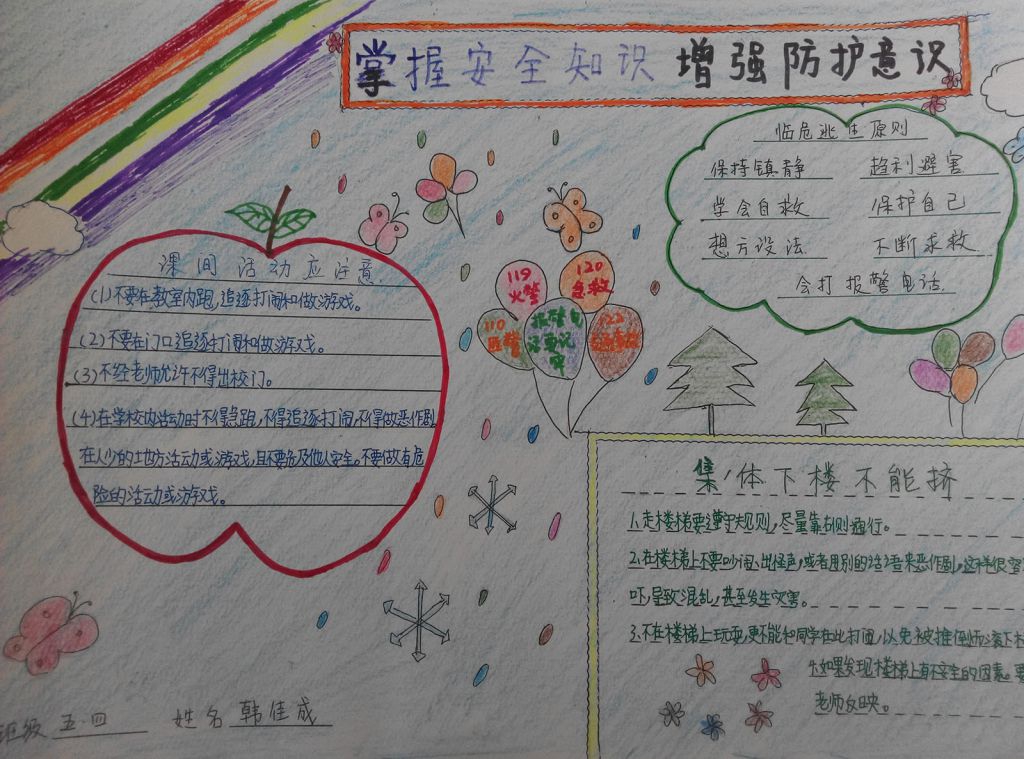 掌握安全知识 增强防护意识
临危逃生原则
保持镇静 趋利避害
学会自救 保护自己
想方设法 不断求救
会打报警电话
课间活动应注意
(1)不要在教室内跑,追逐打闹和做游戏。
(2)不要在门口追逐打闹和做游戏。
(3)不经老师允许不得出校门。
(4)在学校内活动时不得急跑,不得追逐打闹,不得做恶作剧
在人少的地方活动或游戏,且不要危及他人安全。不要做有危
险的活动或游戏。
119
火警
120
急救
110
匪警
报警电
话要记
牢
122
集体下楼不能挤
1.走楼梯要遵守规则,尽量靠右侧通行。
2.在楼梯上不要吵闹、出怪声,或者用别的话语来恶作剧,这样很容
吓,导致混乱,甚至发生灾害。
3.不在楼梯上玩耍,更不能和同学在此打闹,以免被推倒而滚下
4.如果发现楼梯上有不安全的因素。要
老师反映。
班级 五.四 姓名 韩佳成